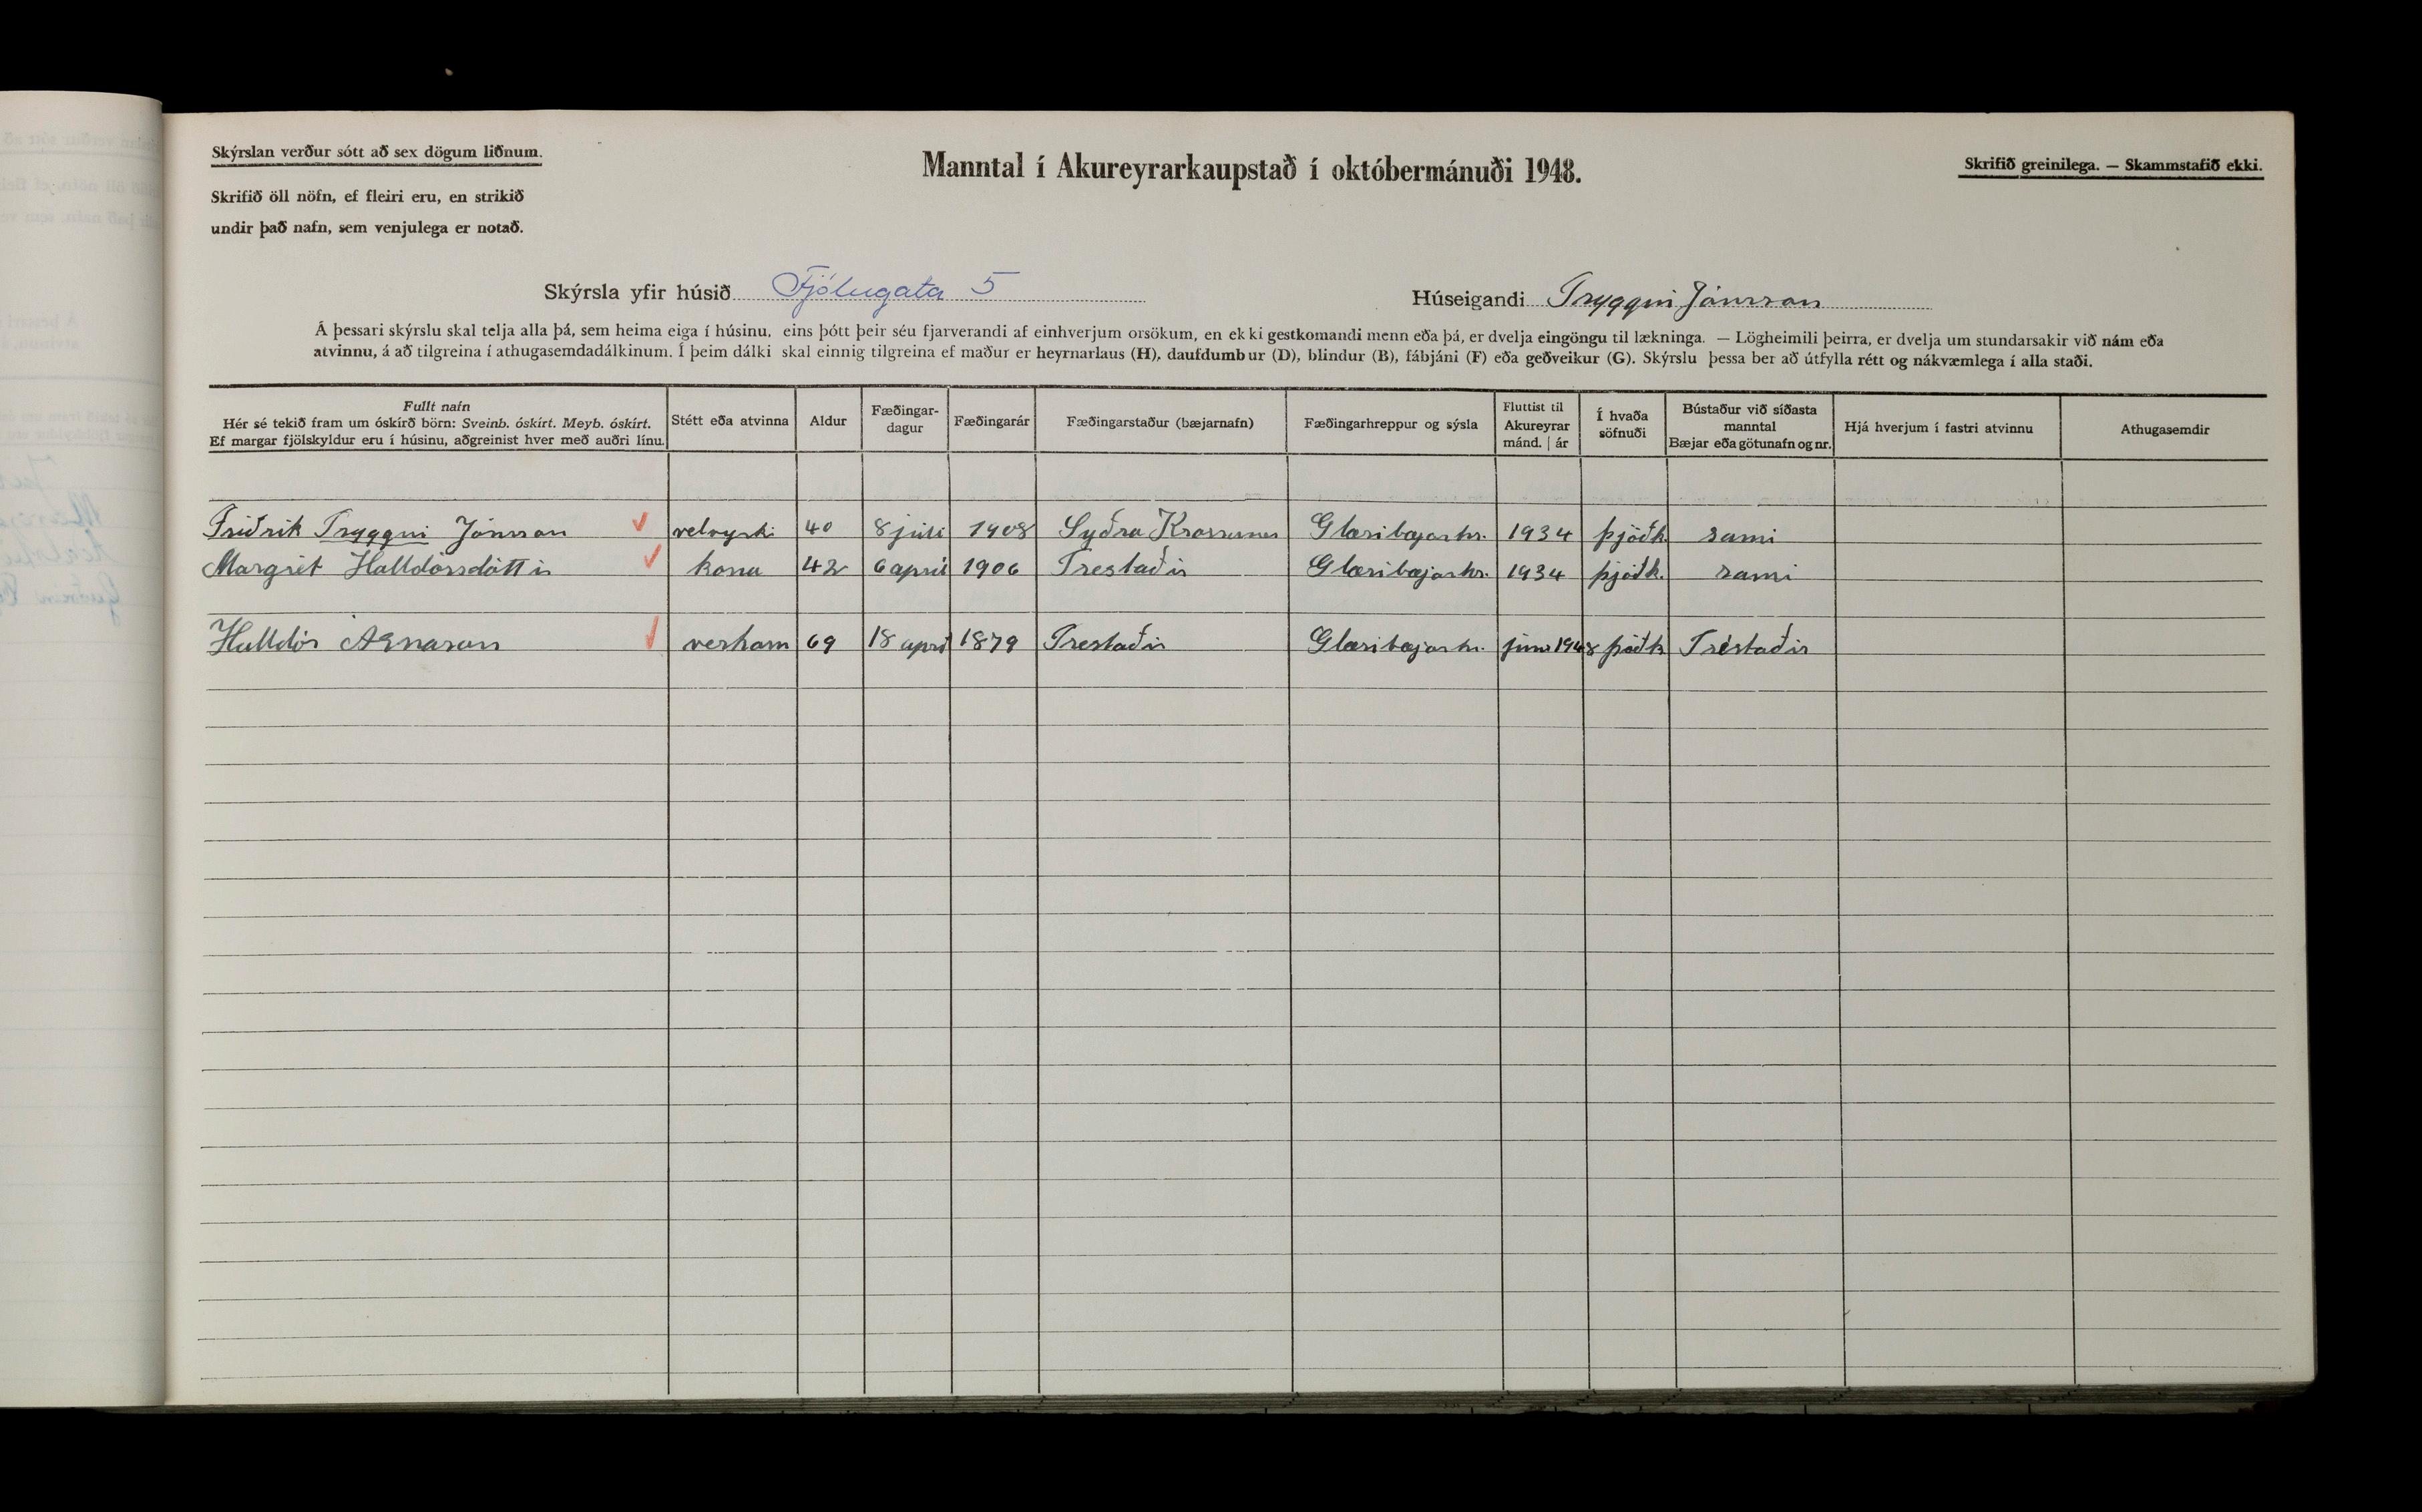 Skýrslan verður sótt að sex dögum liðnum.
Skrifið öll nöfn, ef fleiri eru, en strikið
undir það nafn, sem venjulega er notað.
Manntal í Akureyrarkaupstað í októbermánuði 1948.
Skrifið greinilega. — Skammstafið ekki.
Skýrsla yfir húsið Fjólugata 5 Húseigandi Tryggvi Jónsson
Á þessari skýrslu skal telja alla þá, sem heima eiga í húsinu, eins þótt þeir séu fjarverandi af einhverjum orsökum, en ekki gestkomandi menn eða þá, er dvelja eingöngu til lækninga. — Lögheimili þeirra, er dvelja um stundarsakir við nám eða
atvinnu, á að tilgreina í athugasemdadálkinum. Í þeim dálki skal einnig tilgreina ef maður er heyrnarlaus (H), daufdumbur (D), blindur (B), fábjáni (F) eða geðveikur (G). Skýrslu þessa ber að útfylla rétt og nákvæmlega í alla staði.
Fullt nafn
Hér sé tekið fram um óskírð börn: Sveinb. óskírt. Meyb. óskírt.
Ef margar fjölskyldur eru í húsinu, aðgreinist hver með auðri línu.
Stétt eða atvinna
Aldur
Fæðingar-
dagur
Fæðingarár
Fæðingarstaður (bæjarnafn)
Fæðingarhreppur og sýsla
Fluttist til
Akureyrar
mánd. | ár
Í hvaða
söfnuði
Bústaður við síðasta
manntal
Bæjar eða götunafn og nr.
Hjá hverjum í fastri atvinnu
Athugasemdir
Friðrik Tryggvi Jónsson 40 8 júlí 1908 Syðra Krossanes Glæsibæjarhr. 1934 þjóðk. sami
Margrét Halldórsdóttir kona 42 6 apríl 1906 Trestaðir Glæsibæjarhr. 1934 þjóðk. sami
Halldór Árnason verkam 69 18 apríl 1879 Trestaðir Glæsibæjarhr. júní 1948 þjóðk Tréstaðir